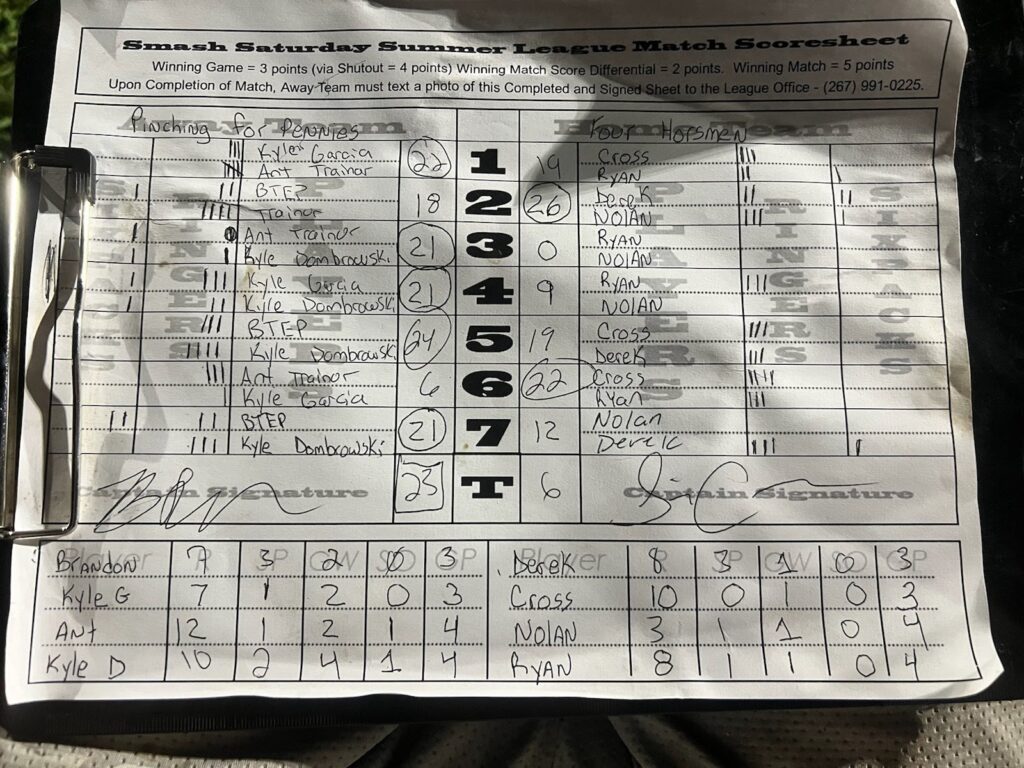 Smash Saturday Summer League Match Scoresheet
Winning Game = 3 points (via Shutout = 4 points) Winning Match Score Differential = 2 points. Winning Match = 5 points
Upon Completion of Match, Away Team must text a photo of this Completed and Signed Sheet to the League Office - (267) 991-0225.
Pinching for Pennies Four Horsmen
Kyle Garcia 22 1 19 Cross
Ant Trainor RYAN
BTEP 18 2 26 Derek
Trainor NOLAN
Ant Trainor 21 3 0 RYAN
Kyle Dombrowski NOLAN
Kyle Garcia 21 4 9 RYAN
Kyle Dombrowski NOLAN
BTEP 24 5 19 Cross
Kyle Dombrowski Derek
Ant Trainor 6 6 22 Cross
Kyle Garcia Ryan
BTEP 21 7 12 Nolan
Kyle Dombrowski Derek
Captain Signature 23 T 6 Captain Signature
Player R SP GW SO GP Player R SP GW SO GP
BRANDON 7 3 2 0 3 Derek 8 3 1 0 3
Kyle G 7 1 2 0 3 Cross 10 0 1 0 3
Ant 12 1 2 1 4 NOLAN 3 1 1 0 4
Kyle D 10 2 4 1 4 RYAN 8 1 1 0 4